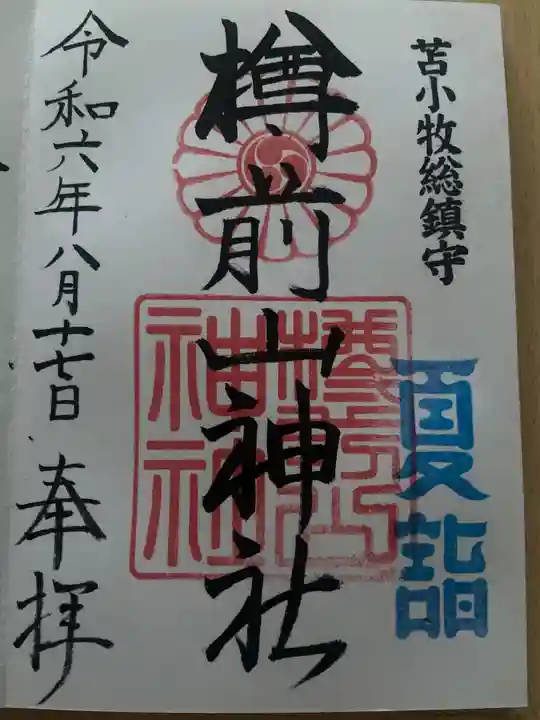 苫小牧総鎮守
夏詣
樽前山神社
樽前山
神社
令和六年八月十七日
奉拝